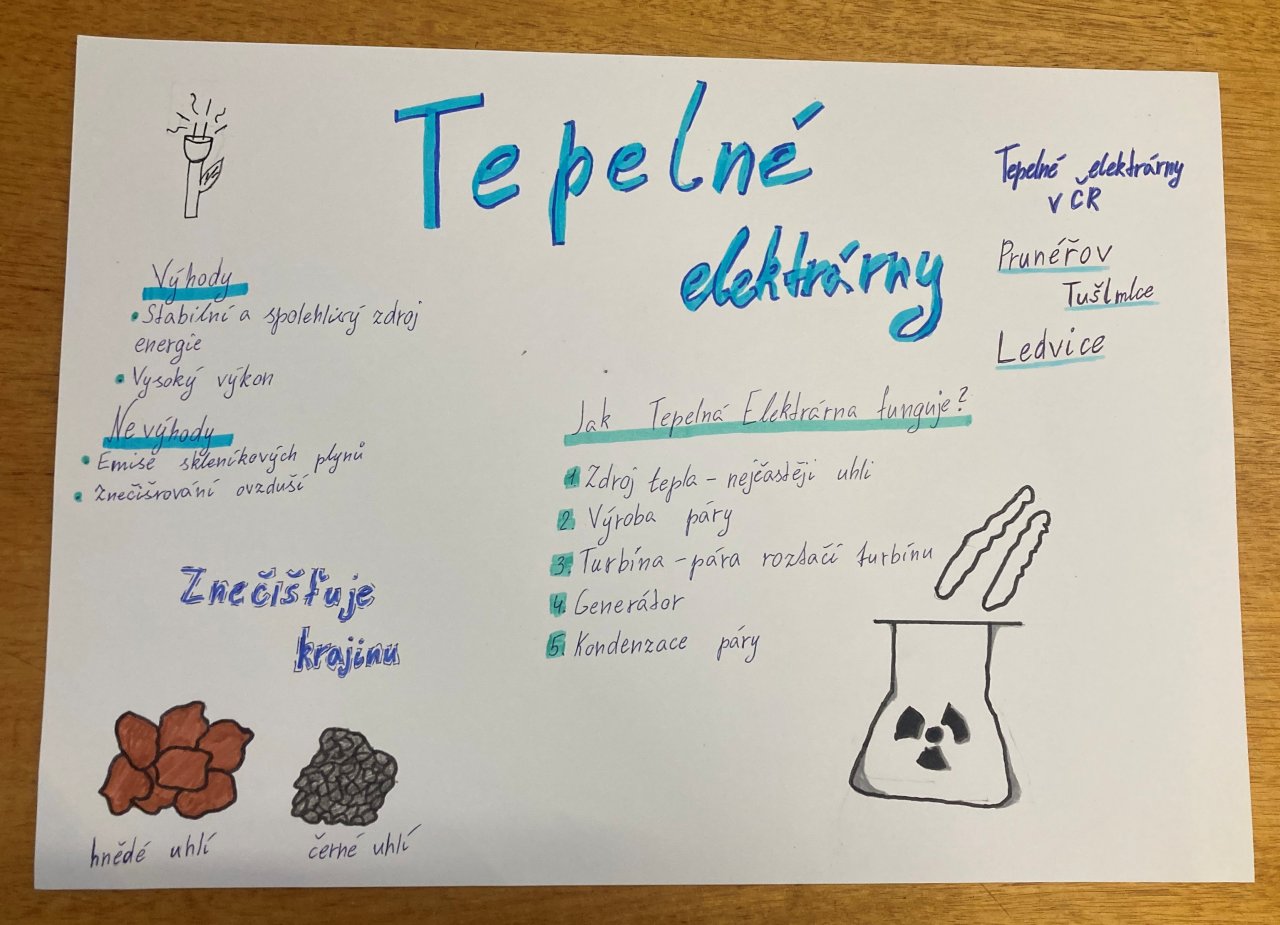 Tepelné
elektrárny
Výhody
• Stabilní a spolehlivý zdroj
energie
• Vysoký výkon
Nevýhody
• Emise skleníkových plynů
• Znečišrování ovzduší
Znečišťuje
krajinu
hnědé uhlí
černé uhlí
Jak Tepelná Elektrárna funguje?
1. Zdroj tepla - nejčastěji uhlí
2. Výroba páry
3. Turbína - pára roztačí turbínu
4. Generátor
5. Kondenzace páry
Tepelné elektrárny
v ČR
Prunéřov
Tušlmlce
Ledvice